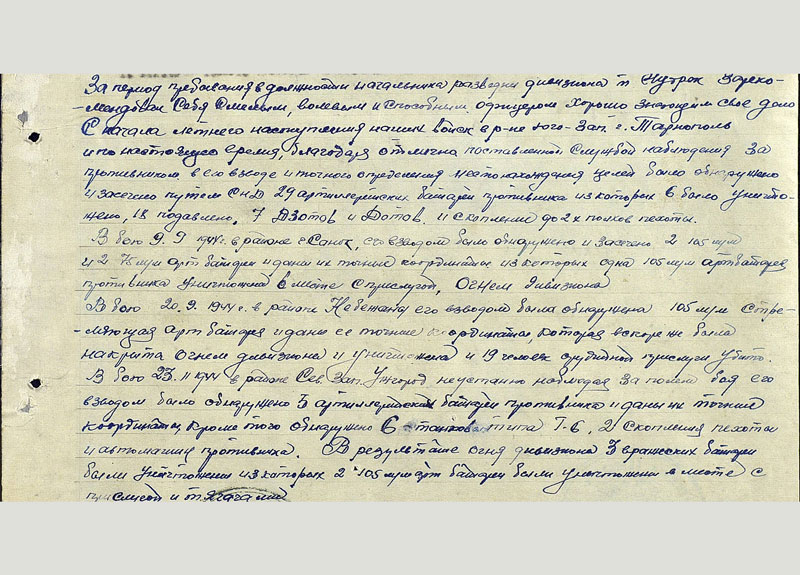 За период пребывания в должности начальника разведки дивизиона т. зареко-
-мендовал себя смелым, волевым и способным офицером хорошо знающим свое дело
С начала летнего наступления наших войск в р-не юго-зап. г. Тарнополь
и по настоящее время, благодаря отлично поставленной службой наблюдения за
противником, в его взводе и точного определения местонахождения целей было обнаружено
и засечено путем СНД 29 артиллерийских батарей противника из которых 6 было уничто-
жено, 18 подавлено, 7 Дзотов и Дотов. и скопление до 2х полков пехоты.
В бою 9.9 1944г. в районе г Санок, его взводом было обнаружено и засечено 2 105 м/м
и 2 75 м/м арт батареи и даны их точные координаты из которых одна 105 м/м артбатарея
противника уничтожена вместе с прислугой, огнем дивизиона
В бою 20.9.1944 г. в районе его взводом была обнаружена 105 м/м стре-
-ляющая арт батарея и даны ее точные координаты, которая вскоре же была
накрыта огнем дивизиона и уничтожена и 19 человек орудийной прислуги убито.
В бою 23.11 1944 в районе Сев. Зап. Ужгород неустанно наблюдая за полем боя его
взводом было обнаружено 3 артиллерийских батареи противника и даны их точные
координаты, кроме того обнаружено 6 танков типа Т-6, 2 скопления пехоты
и автомашин противника. В результате огня дивизиона 3 вражеских батареи
были уничтожены из которых 2 105 м/м арт батареи были уничтожены вместе с
прислугой и тягачами